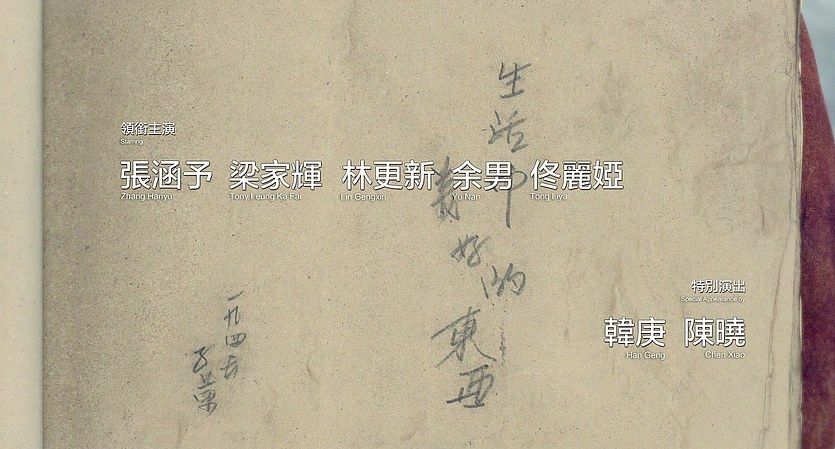 領銜主演
Starring
張涵予 梁家輝 林更新 余男 佟麗婭
Zhang Hanyu Tony Leung Ka Fai Lin Gengxin Yu Nan Tong Liya
生活中
美好的
東西
一九四五
子荣
特別演出
Special Appearance by
韓庚 陳曉
Han Geng Chen Xiao